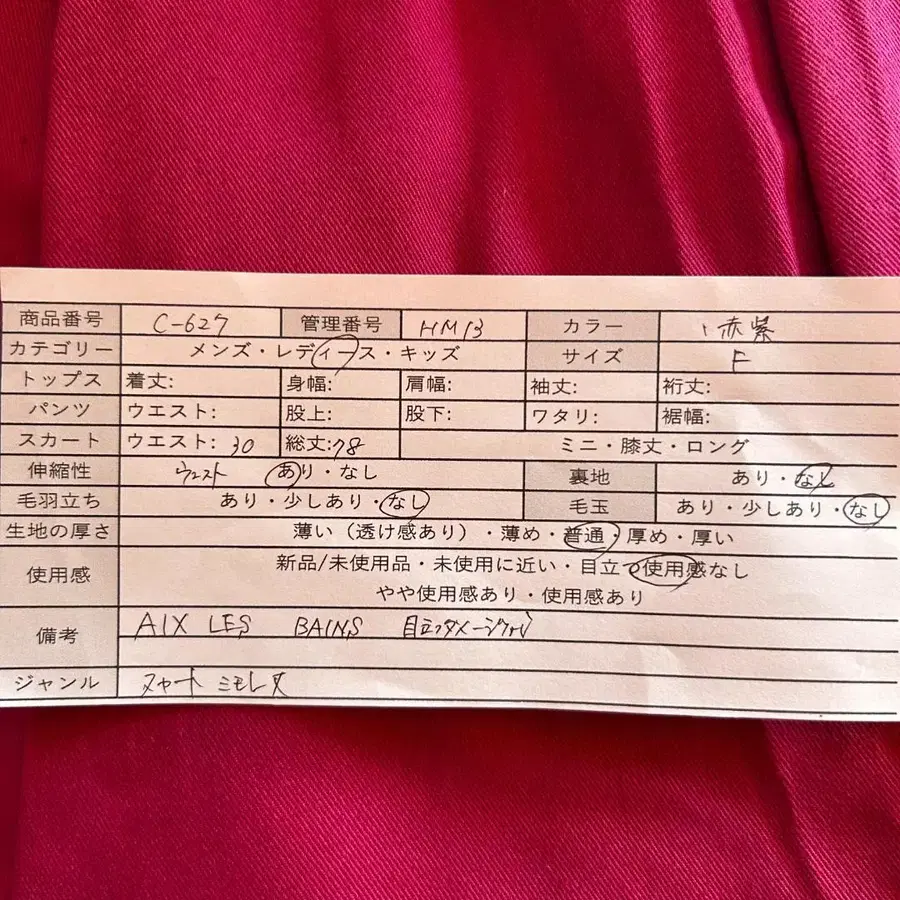 商品番号 C-627 管理番号 HM13 カラー 赤紫
カテゴリー メンズ・レディース・キッズ サイズ F
トップス 着丈: 身幅: 肩幅: 袖丈: 裄丈:
パンツ ウエスト: 股上: 股下: ワタリ: 裾幅:
スカート ウエスト: 30 総丈:78 ミニ・膝丈・ロング
伸縮性 ウエスト あり・なし 裏地 あり・なし
毛羽立ち あり・少しあり・なし 毛玉 あり・少しあり・なし
生地の厚さ 薄い（透け感あり）・薄め・普通・厚め・厚い
使用感 新品/未使用品・未使用に近い・目立つ使用感なし
やや使用感あり・使用感あり
備考 AIX LES BAINS 目立つダメージなし
ジャンル スカート ミモレ丈